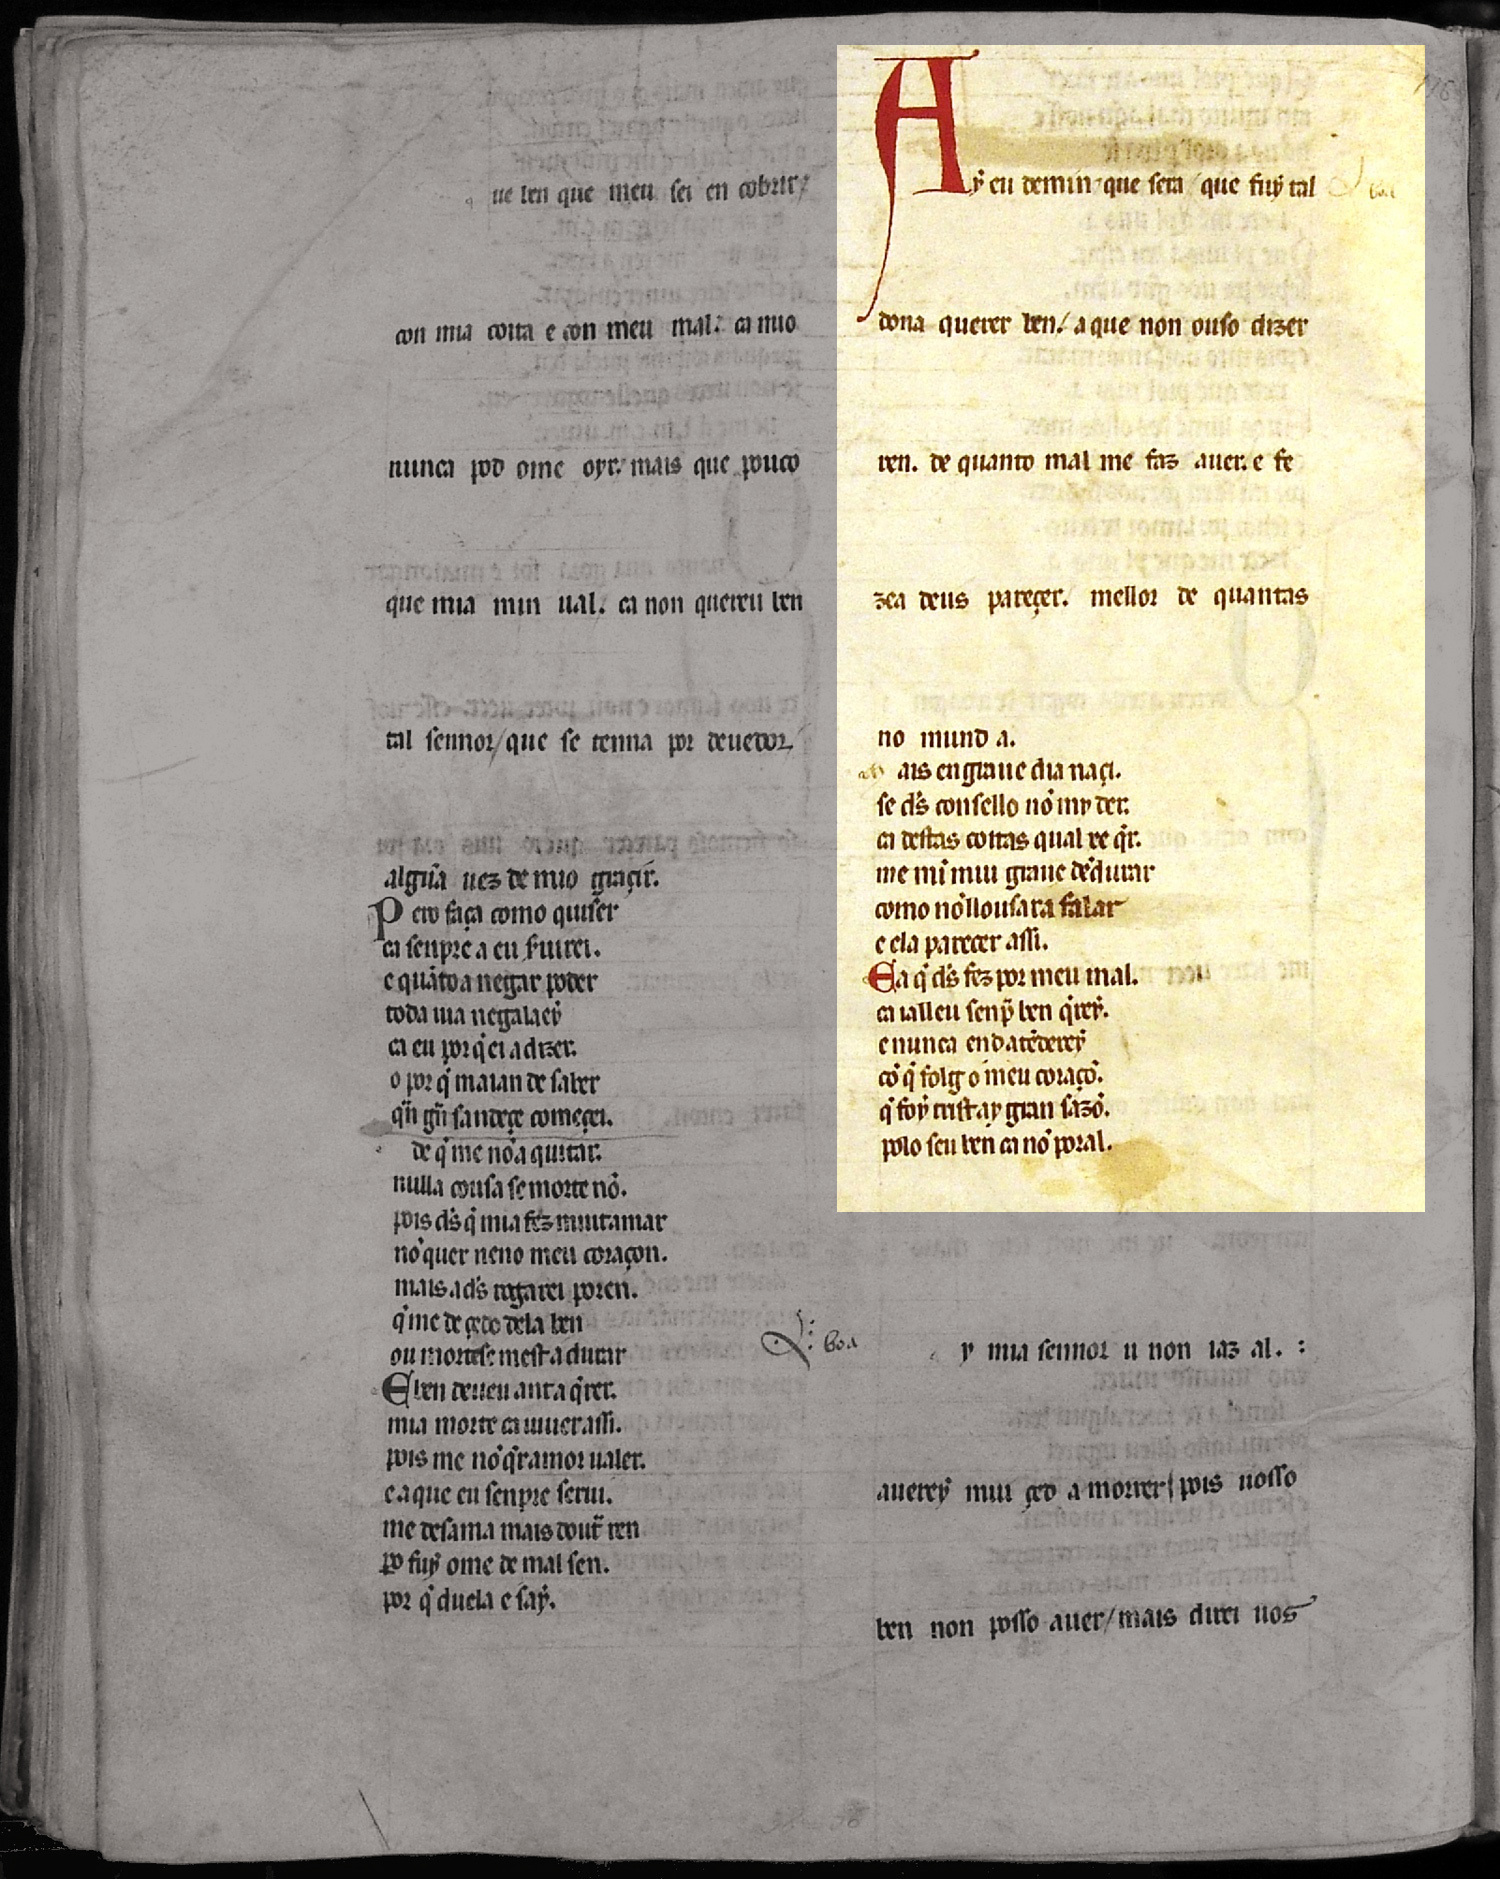 ue ben que meu sei en cobrir/
con mia coita e con meu mal. ca nuo
nunca pod ome oyr. mais que pouco
que mia min ual. ca non quereu ben
tal sennor/que se tenna por deuedor/
algũa uez de mio graçir.
Pero faça como quiser
ca senpre a eu seruirei.
e quãtoa negar poder
toda uia negalaeẏ
ca eu por q̇ ei a dizer.
o por q̇ maian de saber
quã grã sandeçe começei.
de q̇ me nõa quitar.
nulla cousa se morte nõ.
pois d̃s q̇ mia fez muitamar
nõ quer neno meu coraçon.
mais a d̃s rogarei poren.
q̇ me de çedo dela ben
ou morte se mest a durar
E ben deueu anta q̇rer.
mia morte ca uiuer assi.
pois me nõ q̇r amor ualer.
e a que eu senpre serui.
me desama mais doutr̃ ren
p̱o fuẏ ome de mal sen.
por q̇ du ela e saẏ.
Aẏ eu de min que sera/que fuẏ tal
dona querer ben/a que non ouso dizer
ren. de quanto mal me faz auer. e fe
zea deus pareçer. mellor de quantas
no mund a.
ais en graue dia naçi.
se d̃s consello nõ my der.
ca destas coitas qual xe q̇r.
me mĩ mui graue dẽdurar
como nõ llousar a falar
e ela pareçer assi.
Ea q̇ d̃s fez por meu mal.
ca ialleu senp̃ ben q̇reẏ.
e nunca end atẽdereẏ
cõ q̇ folg o meu coraçõ.
q̇ foẏ trist ay gran sazõ.
polo seu ben ca nõ por al.
boa
y mia sennor u non iaz al. :
auereẏ mui çed a morrer/pois uosso
ben non posso auer/mais direi uos